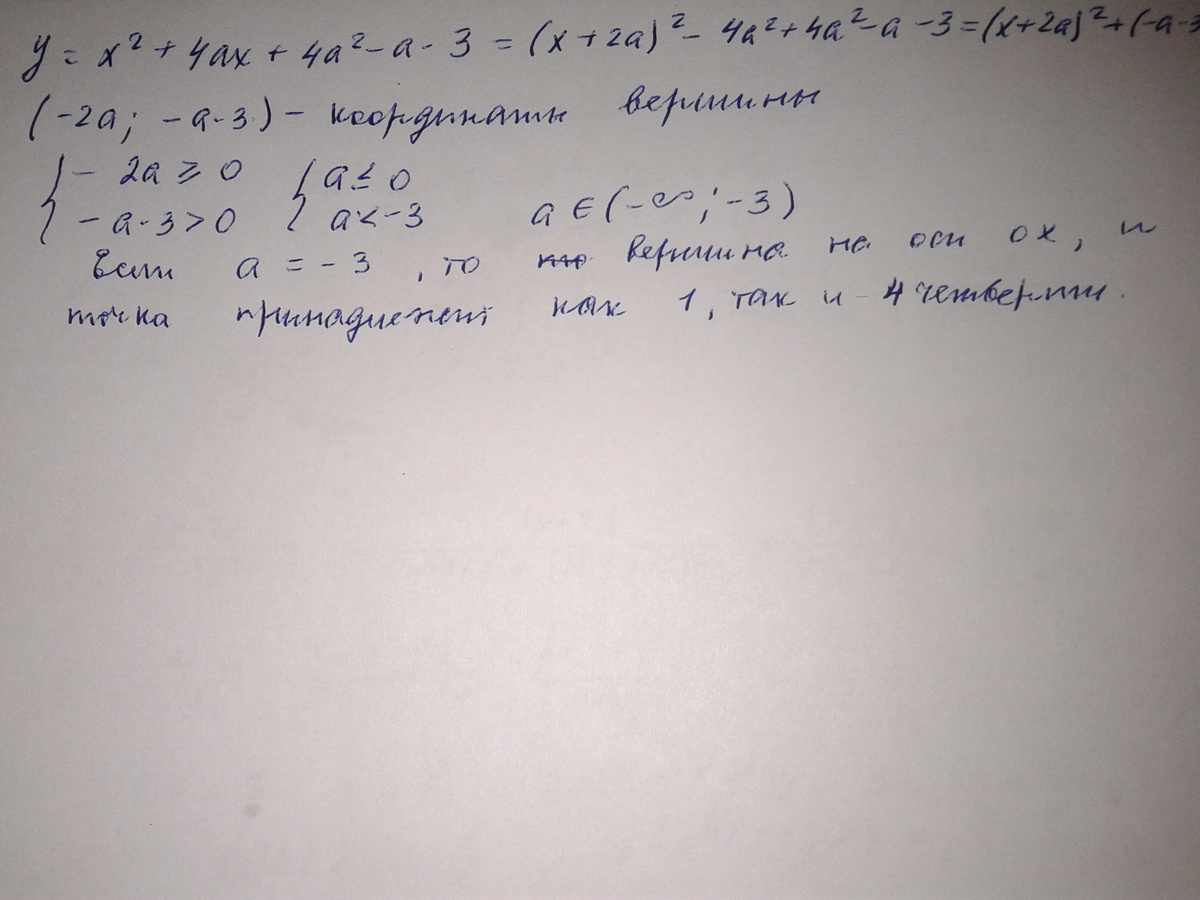 y = x² + 4ax + 4a² - a - 3 = (x + 2a)² - 4a² + 4a² - a - 3 = (x + 2a)² + (-a-3
(-2a; -a-3) - координаты вершины
{ - 2a ⩾ 0 { a ≤ 0
- a - 3 > 0 a < -3 a ∈ (-∞; -3)
Если a = -3, то вершина на оси ox, и
точка принадлежит как 1, так и 4 четверти.